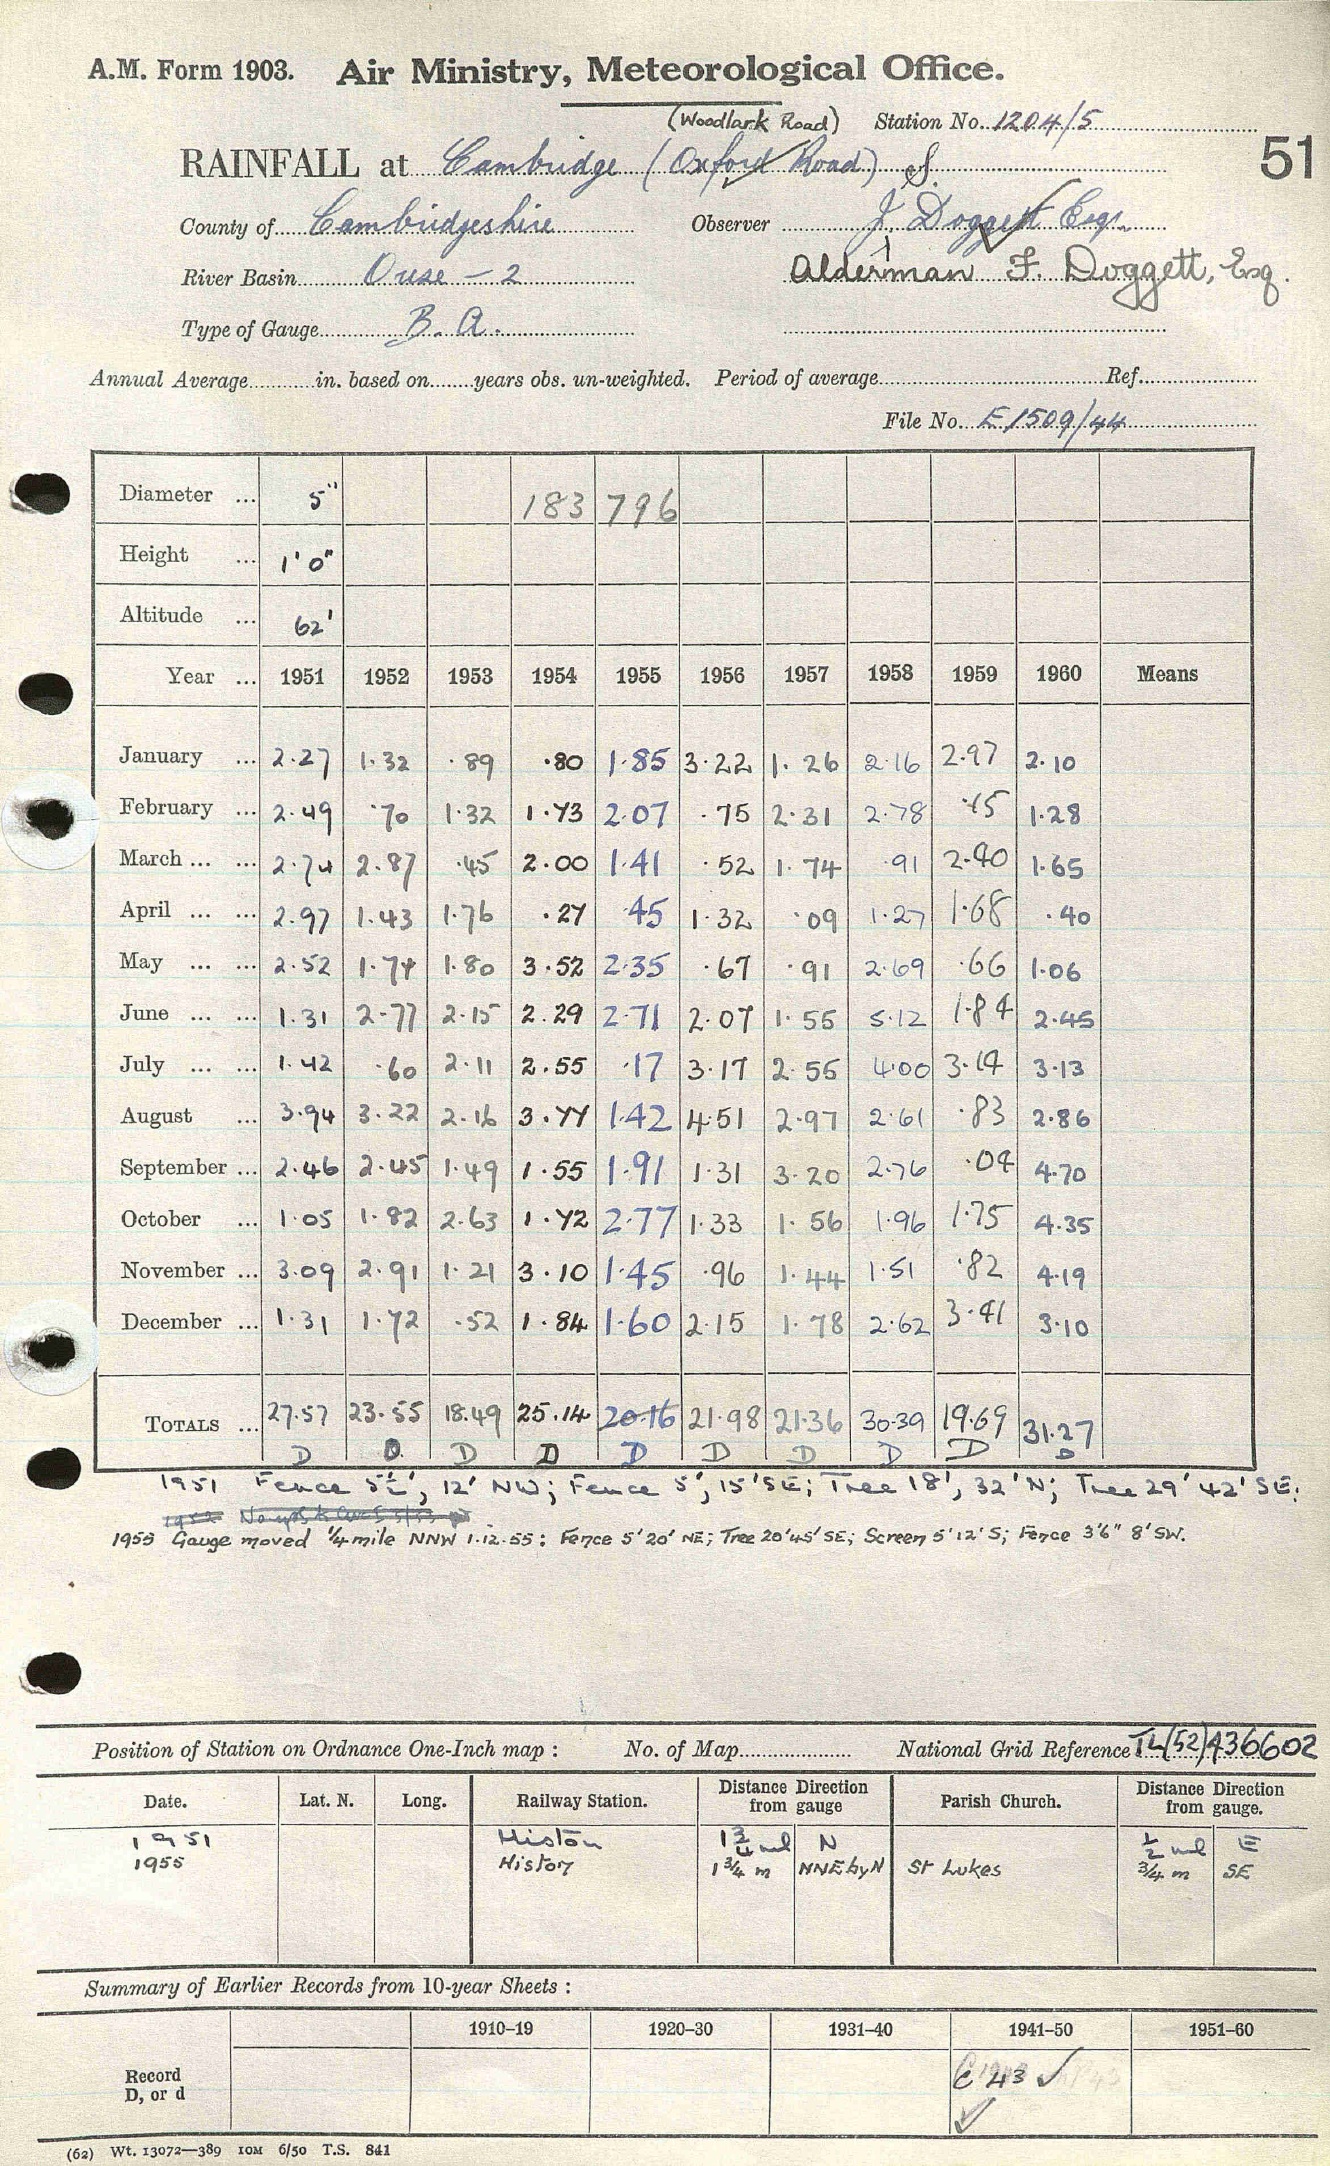 A.M. Form 1903. Air Ministry, Meteorological Office.
(Woodlark Road) Station No. 1204/5
RAINFALL at Cambridge (Oxford Road) S.
51
County of Cambridgeshire Observer J. Doggett Esq.
River Basin Ouse – 2 Alderman F. Doggett, Esq.
Type of Gauge B. A.
Annual Average in. based on years obs. un-weighted. Period of average Ref.
File No. E/509/44
Diameter ... 5" 183 796
Height ... 1' 0"
Altitude ... 62'
Year ... 1951 1952 1953 1954 1955 1956 1957 1958 1959 1960 Means
January ... 2.27 1.32 .89 .80 1.85 3.22 1.26 2.16 2.97 2.10
February ... 2.49 .70 1.32 1.73 2.07 .75 2.31 2.78 .15 1.28
March ... ... 2.74 2.87 .45 2.00 1.41 .52 1.74 .91 2.40 1.65
April ... ... 2.97 1.43 1.76 .27 .45 1.32 .09 1.27 1.68 .40
May ... ... 2.52 1.74 1.80 3.52 2.35 .67 .91 2.69 .66 1.06
June ... ... 1.31 2.77 2.15 2.29 2.71 2.07 1.55 5.12 1.84 2.45
July ... ... 1.42 .60 2.11 2.55 .17 3.17 2.55 4.00 3.14 3.13
August ... 3.94 3.22 2.16 3.77 1.42 4.51 2.97 2.61 .83 2.86
September ... 2.46 2.45 1.49 1.55 1.91 1.31 3.20 2.76 .04 4.70
October ... 1.05 1.82 2.63 1.72 2.77 1.33 1.56 1.96 1.75 4.35
November ... 3.09 2.91 1.21 3.10 1.45 .96 1.44 1.51 .82 4.19
December ... 1.31 1.72 .52 1.84 1.60 2.15 1.78 2.62 3.41 3.10
TOTALS ... 27.57 23.55 18.49 25.14 20.16 21.98 21.36 30.39 19.69 31.27
D D D D D D D D D D
1951 Fence 5½', 12' NW; Fence 5', 15' SE; Tree 18', 32' N; Tree 29' 42' SE.
1952
1955 Gauge moved ¼ mile NNW 1.12.55: Fence 5' 20' NE; Tree 20' 45' SE; Screen 5' 12' S; Fence 3'6" 8' SW.
Position of Station on Ordnance One-Inch map : No. of Map National Grid Reference TL(52)436602
Date. Lat. N. Long. Railway Station. Distance from gauge Direction Parish Church. Distance from gauge. Direction
1951 Histon 1¾ ml N ½ ml E
1955 Histon 1¾ m NNE by N St Lukes ¾ m SE
Summary of Earlier Records from 10-year Sheets :
1910–19 1920–30 1931–40 1941–50 1951–60
Record D, or d C 43 ✓
✓
(62) Wt. 13072—389 10M 6/50 T.S. 841